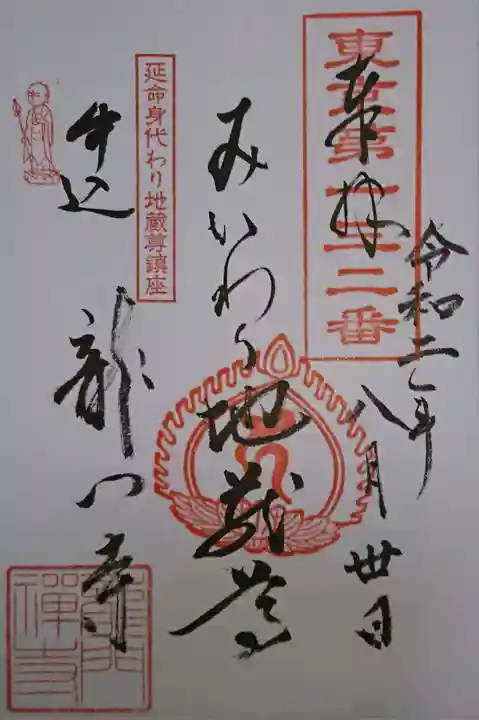 東京第二十二番
奉拝
令和二年八月卅日
みがわり地蔵尊
延命身代わり地蔵尊鎮座
牛込
龍門寺
龍門禅寺